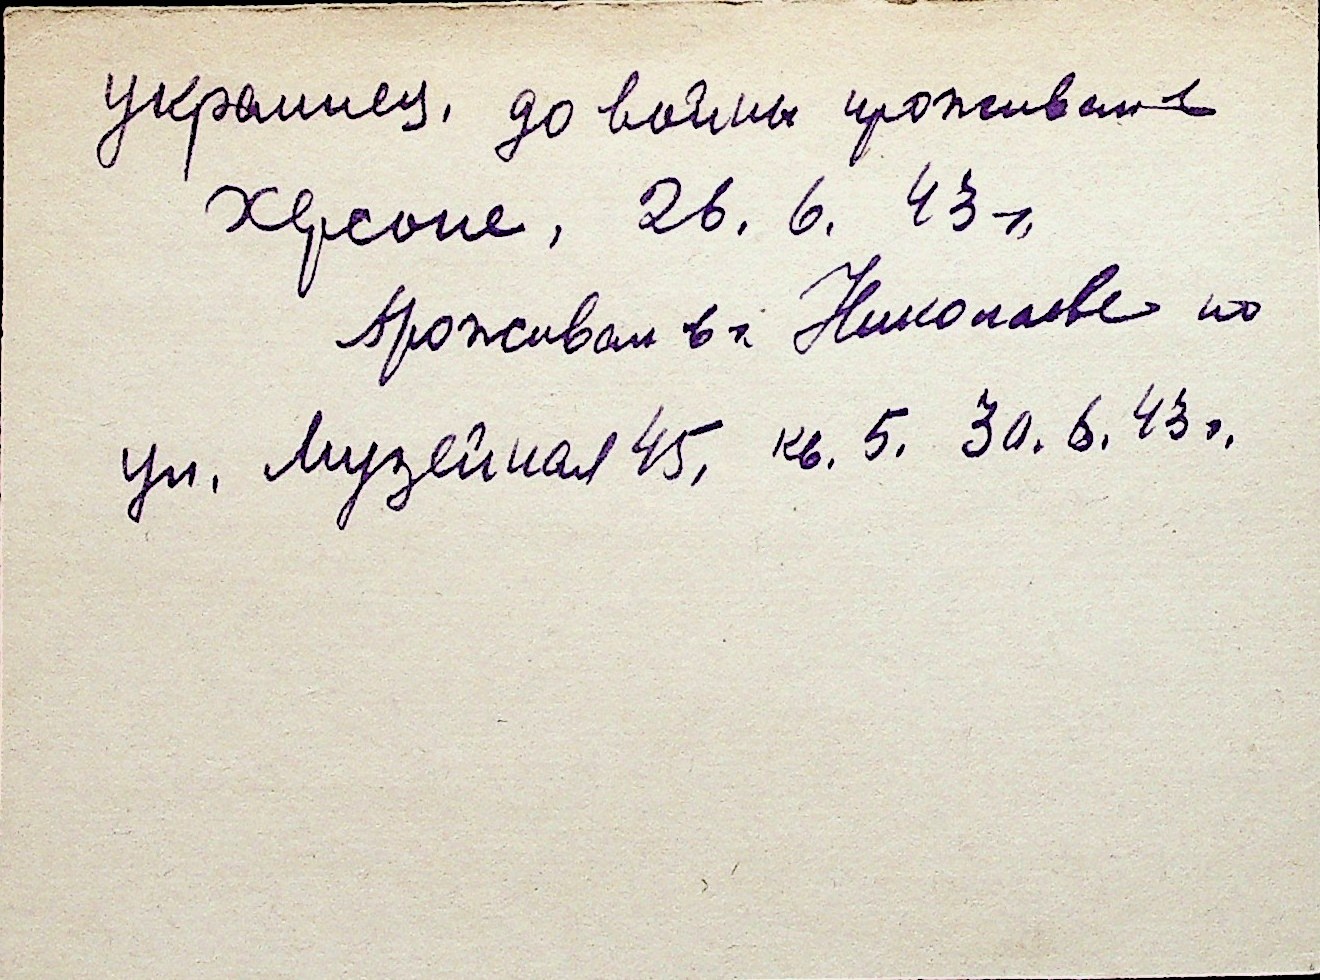 украинец. до войны проживал в
Херсоне, 26. 6. 43 г.
Проживал в г. Николаеве по
ул. Музейная 45, кв. 5. 30. 6. 43 г.